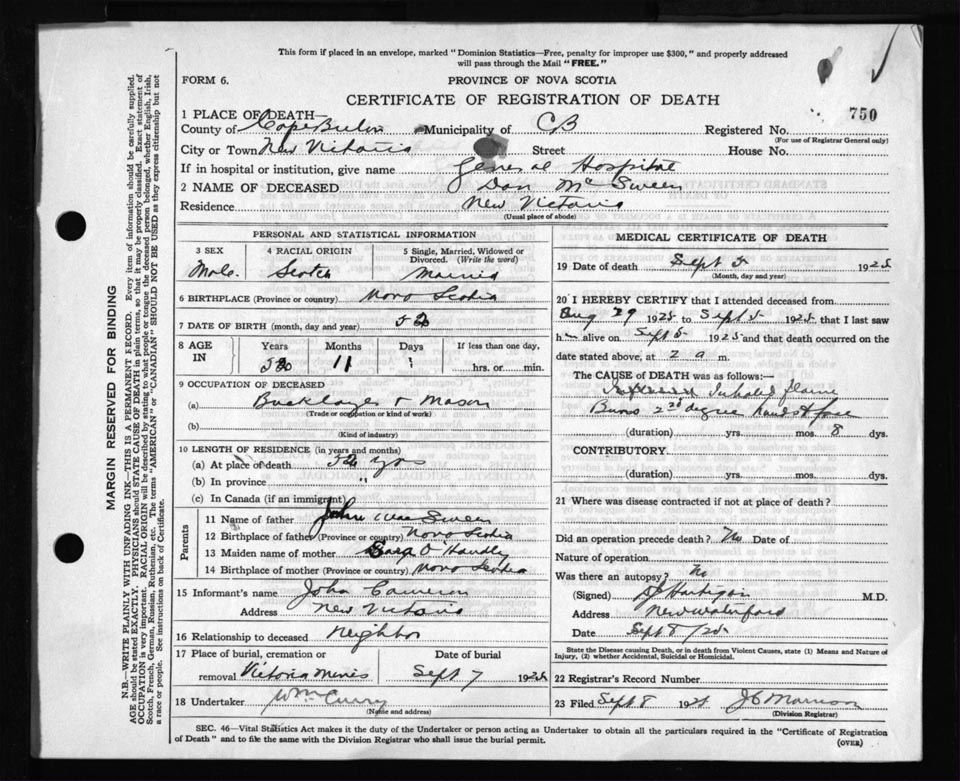 This form if placed in an envelope, marked "Dominion Statistics—Free, penalty for improper use $300," and properly addressed
will pass through the Mail "FREE."
FORM 6.
PROVINCE OF NOVA SCOTIA
CERTIFICATE OF REGISTRATION OF DEATH
750
1 PLACE OF DEATH—
County of Cape Breton Municipality of CB Registered No.
(For use of Registrar General only)
City or Town New Victoria Street House No.
If in hospital or institution, give name General Hospital
2 NAME OF DECEASED Dan Mc Sween
Residence New Victoria
(Usual place of abode)
PERSONAL AND STATISTICAL INFORMATION
3 SEX Male
4 RACIAL ORIGIN Scotch
5 Single, Married, Widowed or Divorced. (Write the word) Married
6 BIRTHPLACE (Province or country) Nova Scotia
7 DATE OF BIRTH (month, day and year)
8 AGE IN Years Months 11 Days If less than one day, hrs. or min.
9 OCCUPATION OF DECEASED
(a) Bricklayer & Mason
(Trade or occupation or kind of work)
(b)
(Kind of industry)
10 LENGTH OF RESIDENCE (in years and months)
(a) At place of death yrs
(b) In province "
(c) In Canada (if an immigrant)
Parents
11 Name of father John MacSween
12 Birthplace of father (Province or country) Nova Scotia
13 Maiden name of mother O'Handly
14 Birthplace of mother (Province or country) Nova Scotia
15 Informant's name John Cameron
Address New Victoria
16 Relationship to deceased Neighbor
17 Place of burial, cremation or removal Victoria Mines
Date of burial Sept 7 1925
18 Undertaker Wm Curry
(Name and address)
MEDICAL CERTIFICATE OF DEATH
19 Date of death Sept 5 1925
(Month, day and year)
20 I HEREBY CERTIFY that I attended deceased from
Aug 29 1925 to Sept 5 1925 that I last saw
h alive on Sept 5 1925 and that death occurred on the
date stated above, at 2 a m.
The CAUSE of DEATH was as follows:—
Inhaled flame
Burns 2nd degree hands & face
(duration) yrs. mos. 8 dys.
CONTRIBUTORY.
(duration) yrs. mos. dys.
21 Where was disease contracted if not at place of death?
Did an operation precede death? No Date of
Nature of operation
Was there an autopsy? No
(Signed) Hartigan M.D.
Address New Waterford
Date Sept 8/25
State the Disease causing Death, or in death from Violent Causes, state (1) Means and Nature of
Injury, (2) whether Accidental, Suicidal or Homicidal.
22 Registrar's Record Number
23 Filed Sept 8 1925 J C Morrison
(Division Registrar)
SEC. 46—Vital Statistics Act makes it the duty of the Undertaker or person acting as Undertaker to obtain all the particulars required in the "Certificate of Registration
of Death" and to file the same with the Division Registrar who shall issue the burial permit.
(OVER)
MARGIN RESERVED FOR BINDING
N.B.—WRITE PLAINLY WITH UNFADING INK—THIS IS A PERMANENT RECORD. Every item of information should be carefully supplied.
AGE should be stated EXACTLY. PHYSICIANS should STATE CAUSE OF DEATH in plain terms, so that it may be properly classified. Exact statement of
OCCUPATION is very important. RACIAL ORIGIN will be described by stating to what people or tongue the deceased person belonged, whether English, Irish,
Scotch, French, German, Russian, Ruthenian, etc. The terms "AMERICAN" or "CANADIAN" SHOULD NOT BE USED as they express citizenship but not
a race or people. See instructions on back of Certificate.